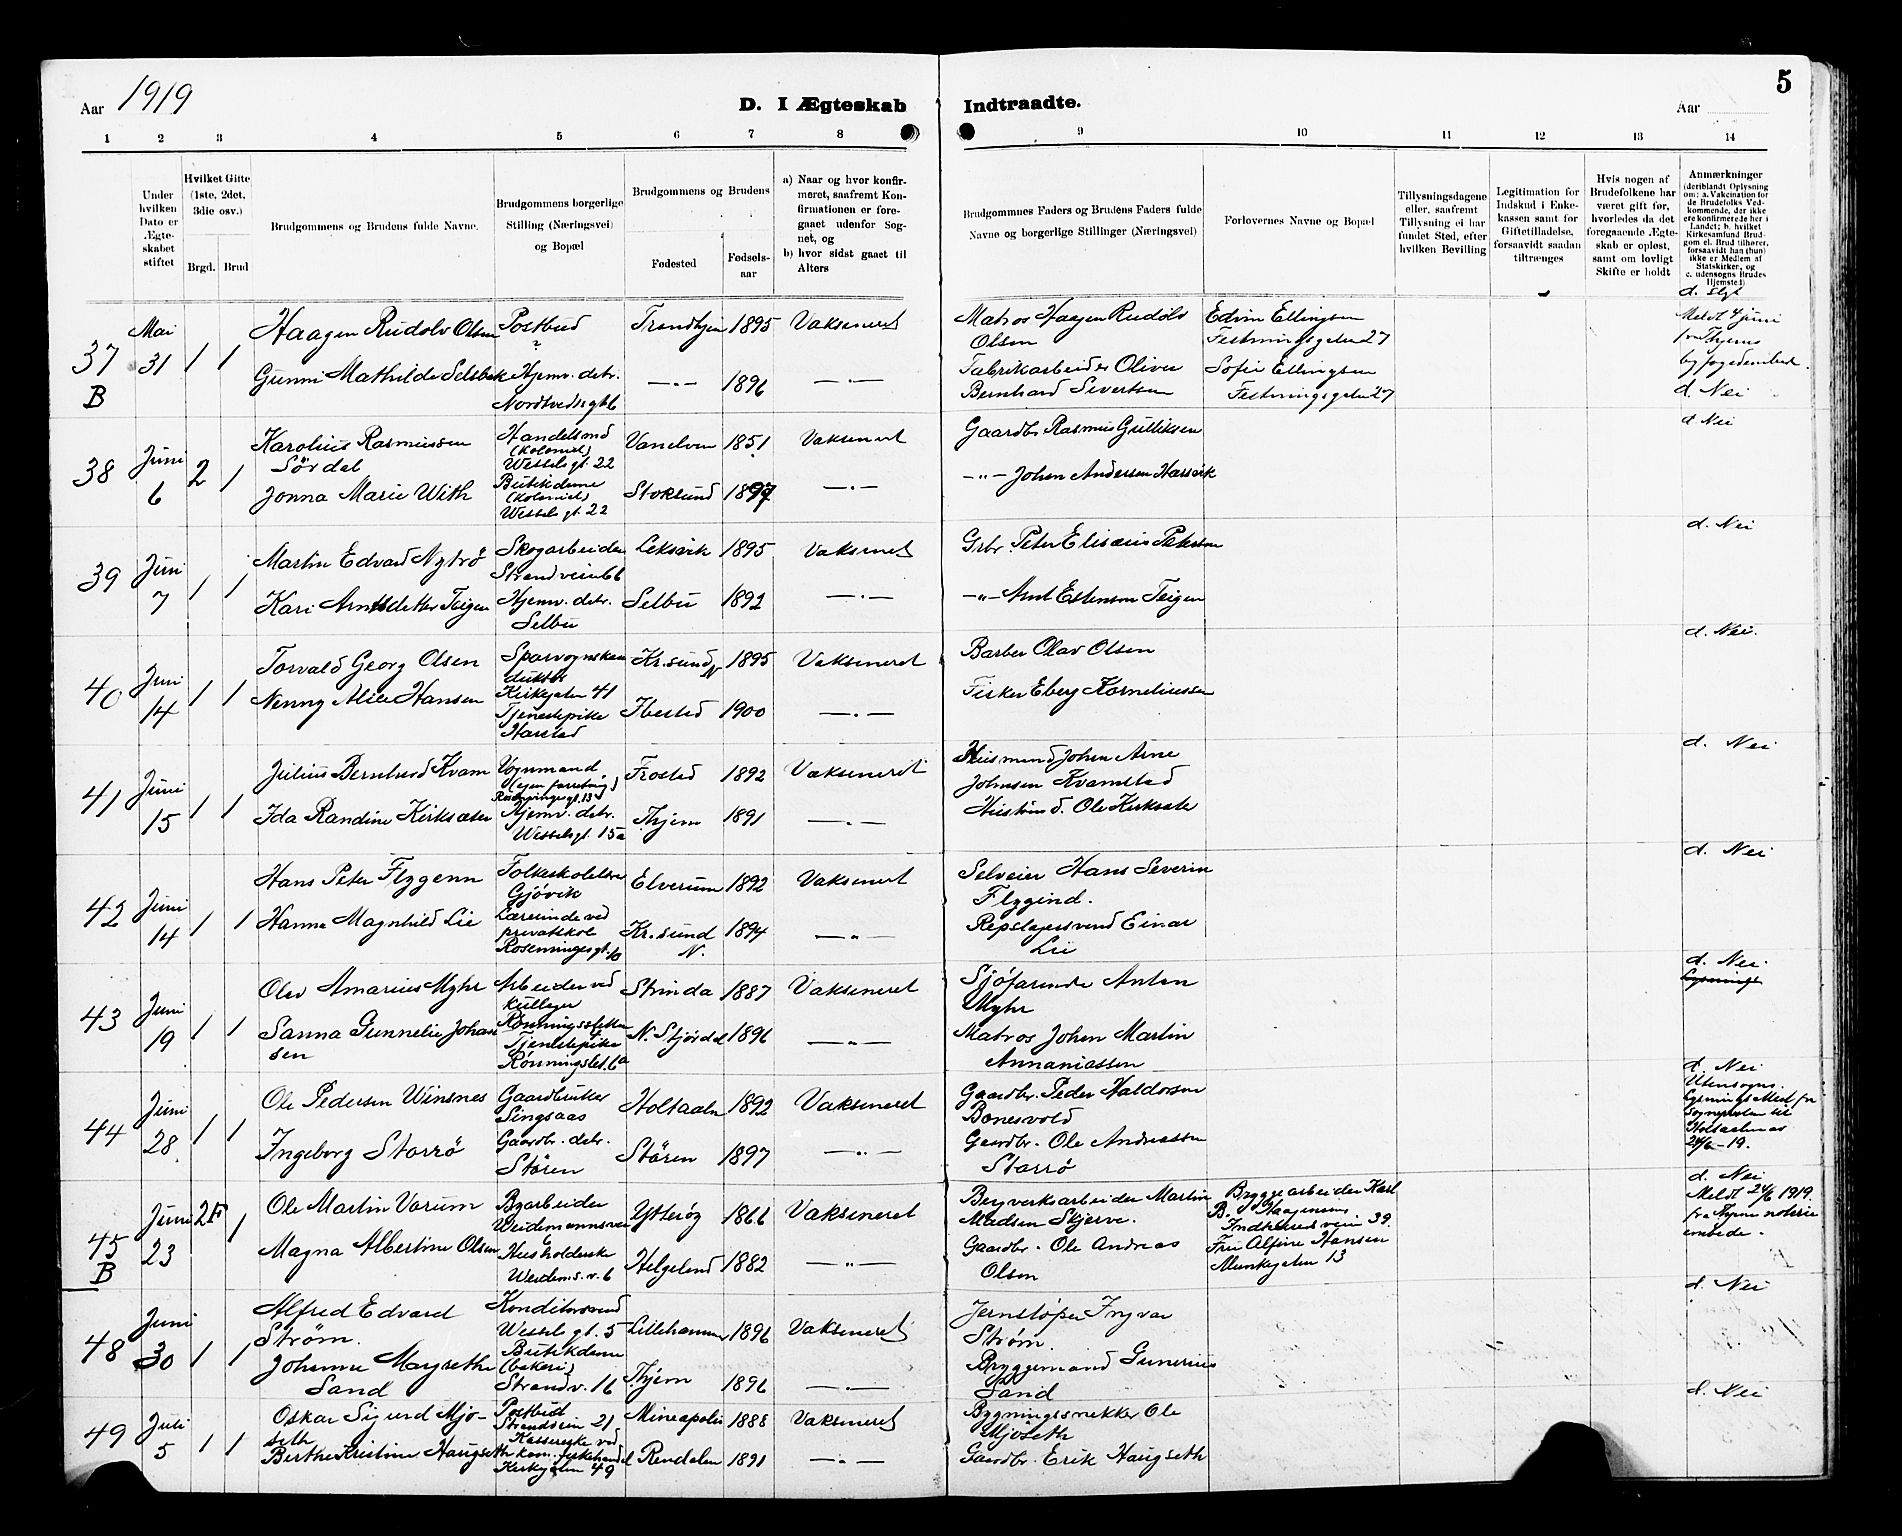 5
Aar 1919
D. I Ægteskab Indtraadte.
Aar
1 2 3 4 5 6 7 8 9 10 11 12 13 14
Under hvilken Dato er Ægteskabet stiftet
Hvilket Gifte (1ste, 2det, 3die osv.)
Brgd. Brud
Brudgommens og Brudens fulde Navne.
Brudgommens borgerlige Stilling (Næringsvei) og Bopæl
Brudgommens og Brudens
Fødested
Fødselsaar
a) Naar og hvor konfirmeret, saafremt Konfirmationen er foregaaet udenfor Sognet, og
b) hvor sidst gaaet til Alters
Brudgommens Faders og Brudens Faders fulde Navne og borgerlige Stillinger (Næringsvei)
Forlovernes Navne og Bopæl
Tillysningsdagene eller, saafremt Tillysning ei har fundet Sted, efter hvilken Bevilling
Legitimation for Indskud i Enkekassen samt for Giftetilladelse, forsaavidt saadan tiltrænges
Hvis nogen af Brudefolkene har været gift før, hvorledes da det foregaaende Ægteskab er opløst, samt om lovligt Skifte er holdt
Anmærkninger (deriblandt Oplysning om: a. Vakcination for de Brudefolks Vedkommende, der ikke ere konfirmerede her i Landet; b. hvilket Kirkesamfund Brudgom el. Brud tilhører, forsaavidt han (hun) ikke er Medlem af Statskirken, og c. udensogns Brudes Hjemsted)
37 B
Mai 31
1 1
Haagen Rudolv Olsen
Postbud
?
Trondhjem 1895 Vaksineret
Matros Haagen Rudolv Olsen
Edvin Ellingsen
Festningsgaten 27
d. Slgt
Meldt 4 juni
fra Thjems
byfogedembed.
Gunni Mathilde Selsbak
Hjemv. detr.
Nordtvedts gt 6
—"— 1896 —"—
Fabrikarbeider Oliver
Bernhard Sivertsen
Sofie Ellingsen
Festningsgaten 27
d. Nei
38
Juni 6
2 1
Karolius Rasmussen
Sördal
Handelsmd
(kolonial)
Wessels gt. 22
Vanelven 1851 Vaksineret
Gaardbr Rasmus Gulliksen
d Nei
Jonna Marie With
Butikdame
(kolonial)
Wessels gt. 22
Stoksund 1897 —"—
—"— Johan Andersen Harsvik
39
Juni 7
1 1
Martin Edvard Nytrö
Skogarbeider
Strandveien 66
Leksvik 1895 Vaksineret
Grbr. Peter Elisæus Petersen
d. Nei
Kari Arntsdatter Teigen
Hjemv. detr.
Selbu
Selbu 1892 —"—
—"— Arnt Estensen Teigen
40
Juni 14
1 1
Torvald Georg Olsen
Sporvognskon
duktör
Kirkegaten 41
Kr.sund N 1895 Vaksineret
Barber Olav Olsen
d. Nei.
Nenny Alice Hansen
Tjenestepike
Harstad
Ibestad 1900 —"—
Fisker Eberg Korneliussen
41
Juni 15
1 1
Julius Bernhard Kvam
Vognmand
(egen forretning)
Frosted 1892 Vaksineret
Husmand Johan Arne
Johnsen Kvamstad
d. Nei
Ida Randine Kirksæter
Hjemv. detr.
Wessels gt. 15a
Thjem 1891 —"—
Husmd. Ole Kirksæter
42
Juni 14
1 1
Hans Peter Flygenn
Folkeskolelærer
Gjövik
Elverum 1892 Vaksineret
Selveier Hans Severin
Flygind.
d. Nei
Hanna Magnhild Lie
Lærerinde ved
privatskole
Rosenborgs gt. 10
Kr.sund N. 1894 —"—
Repslagersvend Einar
Lie
43
Juni 19
1 1
Olav Amarius Myhr
Arbeider ved
kullager
Rönningsletten
Strinda 1887 Vaksineret
Sjöfarende Anton
Myhr
d. Nei.
Sanna Gunnelie Johan
sen
Tjenestepike
Rönningslet. 6a
N. Stjördal 1896 —"—
Matros Johan Martin
Annaniassen
44
Juni 28
1 1
Ole Pedersen Winsnes
Gaardbruker
Singsaas
Holtaalen 1892 Vaksineret
Gaardbr. Peder Haldorsen
Bonesvold
d. Nei
Utensogns.
Lysningsattest fra
Sogneprsten til
Holtaalen as
24/6-19.
Ingeborg Storrö
Gaardbr. detr.
Stören
Stören 1897 —"—
Gaardbr. Ole Andreassen
Storrö
45 B
Juni 23
2 F 1
Ole Martin Vorum
Byarbeider
Weidemannsvei
6
Ytteröy 1866 Vaksineret
Bergverksarbeider Martin
Madsen Skjerve.
Byggearbeider Karl
B. Haagensen
Indherredsveien 39.
d. Nei
Meldt 24/6 1919
fra Thjems notarie
embede.
Magna Albertine Olsen
Husholderske
Weidems. v. 6
Helgeland 1882 —"—
Gaardbr. Ole Andreas
Olsen
Fru Alfine Hansen
Munkegaten 13
48
Juni 30
1 1
Alfred Edvard
Ström.
Konditorsvend
Wessels gt. 5
Lillehammer 1896 Vaksineret
Jernstöper Ingvar
Ström.
d. Nei
Johanne Margrethe
Sand
Butikdame
(bakeri)
Strandv. 16
Thjem 1896 —"—
Bryggemand Gunerius
Sand
49
Juli 5
1 1
Oskar Sigurd Mjö-
seth
Postbud
Strandveien 21
Mineapolis 1888 Vaksineret
Bygningssnekker Ole
Mjöseth
d. Nei
Berthe Kristine Haugseth
Kassererske ved
kom. fiskehandel
Kirkegaten 49
Rendalen 1891 —"—
Gaardbr. Erik Haugseth